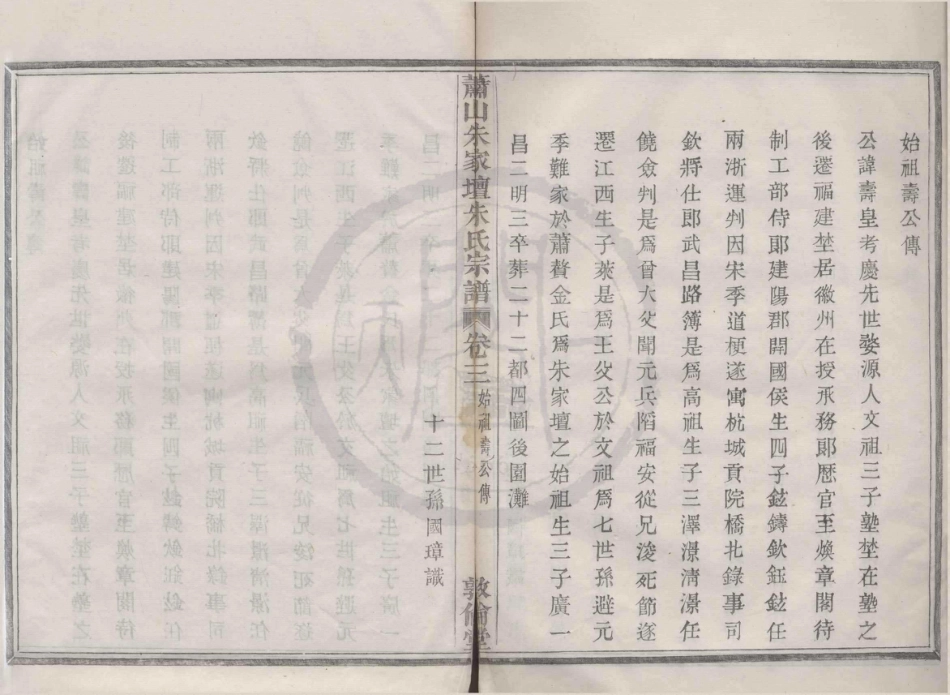 始祖壽公傳
公諱壽皇考慶先世婺源人文祖三子塾埜在塾之
後遷福建埜居徽州在授承務郞厯官至煥章閣待
制工部侍郞建陽郡開國侯生四子鉉鑄欽鈺鉉任
兩浙運判因宋季道梗遂寓杭城貢院橋北錄事司
欽將仕郞武昌路簿是爲高祖生子三澤濦淸濦任
饒僉判是爲曾大父聞元兵䧟福安從兄浚死節遂
遷江西生子萊是爲王父公於文祖爲七世孫避元
季難家於蕭贅金氏爲朱家壇之始祖生三子廣一
昌二明三卒葬二十二都四圖後園灘
十二世孫國璋識
蕭山朱家壇朱氏宗譜 卷三 始祖壽公傳 敦倫堂